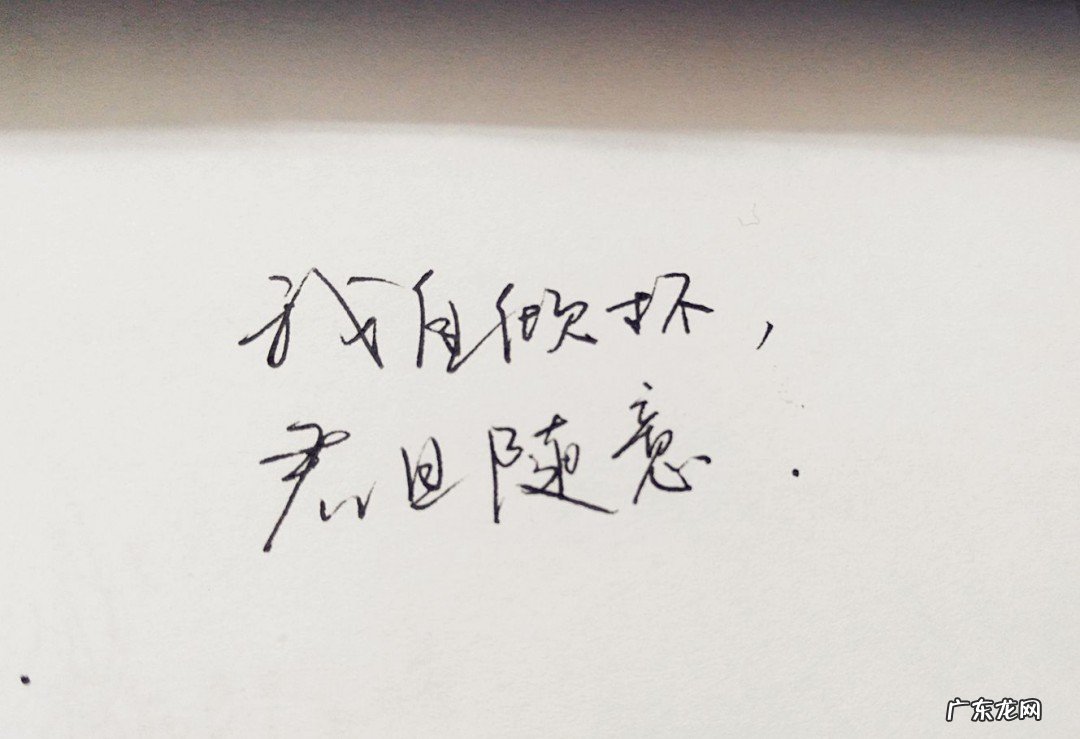 我自倾杯，
君且随意.
广东龙网